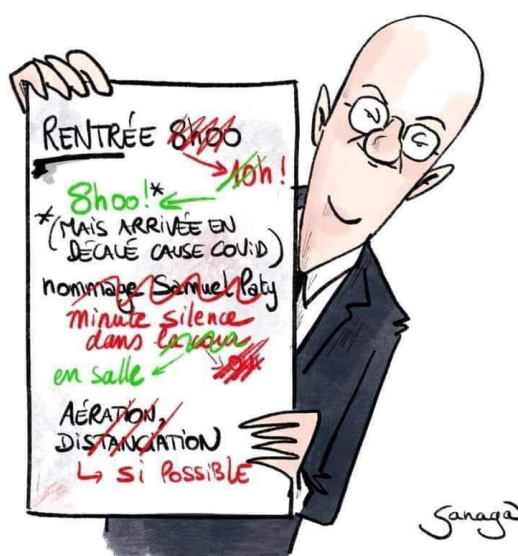 RENTRÉE 8h00
10h!
8h00!*
*(MAIS ARRIVÉE EN
DÉCALÉ CAUSE COVID)
hommage Samuel Paty
minute silence
dans la cour
en salle
AÉRATION,
DISTANCIATION
↳ SI POSSIBLE
Sanaga